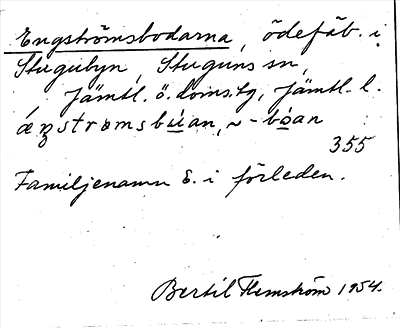 Engströmsbodarna, ödefäb. i
Stugubyn, Stuguns sn,
Jämtl. ö. doms.tg, Jämtl. l.
áŋstrømsbùan, ~ -bòan
355
Familjenamn E. i förleden.
Bertil Flemström 1954.